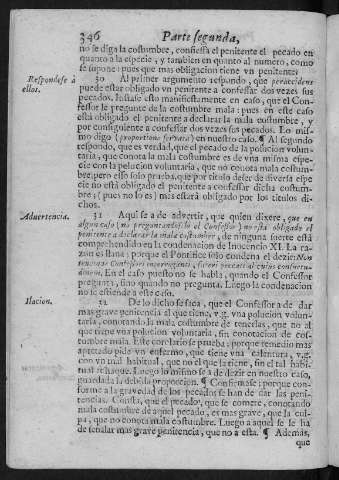 346 Parte segunda,
no se diga la costumbre, confiessa el penitente el pecado en
quanto a la especie, y tambien en quanto al numero, como
se supone: pues que mas obligacion tiene vn penitente?
Respondese à
ellos.
30 Al primer argumento respondo, que peraccidens
puede estar obligado vn penitente a confessar dos vezes sus
pecados. Instase esto manifiestamente en caso, que el Con-
fessor le pregunte de la costumbre mala: pues en este caso
està obligado el penitente a declarar la mala costumbre, y
por consiguiente a confessar dos vezes sus pecados. Lo mis-
mo digo (proportione servata) en nuestro caso. ¶ Al segundo
respondo, que es verdad, que el pecado de la polucion volun-
taria, que conota la mala costumbre es de vna misma espe-
cie con la polucion voluntaria, que no conota la mala costum-
bre; pero esso solo prueba, que por titulo de ser de diversa espe-
cie no està obligado el penitente a confessar dicha costum-
bre; (pues no lo es) mas estarà obligado por los titulos di-
chos.
Aduertencia.
31 Aqui se a de advertir, que quien dixere, que en
algun caso (no preguntandoselo el Confessor) no està obligado el
penitente a declarar la mala costumbre, de ninguna suerte està
comprehendido en la condenacion de Inocencio XI. La ra-
zon es llana; porque el Pontifice solo condena el dezir: Non
tenemur Confessario interroganti, fateri peccati alicuius consuetu-
dinem. En el caso puesto no se habla, quando el Confessor
pregunta, sino quando no pregunta. Luego la condenacion
no se estiende a este caso.
Ilacion.
32 De lo dicho se saca, que el Confessor a de dar
mas grave penitencia al que tiene, v.g. vna polucion volun-
taria, conotando la mala costumbre de tenerlas, que no al
que tiene vna polucion voluntaria, sin conotacion de cos-
tumbre mala. Este corelario se prueba; porque remedio mas
apretado pide vn enfermo, que tiene vna calentura, v.g.
con vn mal habitual, que no el que la tiene, sin el tal habi-
tual achaque. Luego lo mismo se a de dezir en nuestro caso,
guardada la debida proporcion. ¶ Confirmase: porque con-
forme a la gravedad de los pecados se han de dar las peni-
tencias. Consta, que el pecado, que se comete, conotando
mala costumbre de aquel pecado, es mas grave, que la cul-
pa, que no conota mala costumbre. Luego a aquel se le ha
de señalar mas grave penitencia, que no a esta. ¶ Ademas,
que